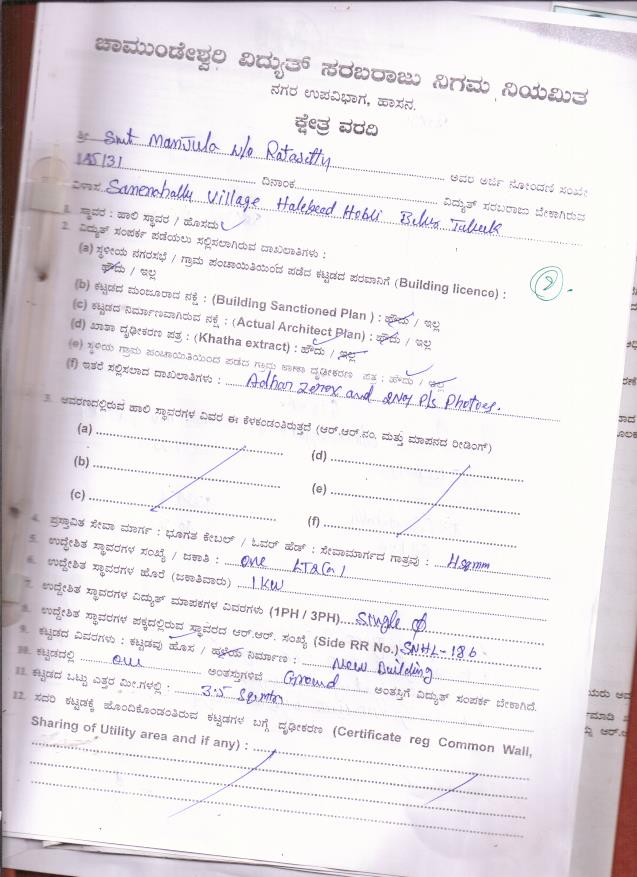 ಚಾಮುಂಡೇಶ್ವರಿ ವಿದ್ಯುತ್ ಸರಬರಾಜು ನಿಗಮ ನಿಯಮಿತ
ನಗರ ಉಪವಿಭಾಗ, ಹಾಸನ.
ಕ್ಷೇತ್ರ ವರದಿ
ಶ್ರೀ Smt Manjula w/o ಅವರ ಅರ್ಜಿ ನೋಂದಣಿ ಸಂಖ್ಯೆ
ದಿನಾಂಕ ವಿದ್ಯುತ್ ಸರಬರಾಜು ಬೇಕಾಗಿರುವ
ವಿಳಾಸ Sanenahally Village Halebeed Hobli Belur Taluk
1. ಸ್ಥಾವರ : ಹಾಲಿ ಸ್ಥಾವರ / ಹೊಸದು
2. ವಿದ್ಯುತ್ ಸಂಪರ್ಕ ಪಡೆಯಲು ಸಲ್ಲಿಸಲಾಗಿರುವ ದಾಖಲಾತಿಗಳು :
(a) ಸ್ಥಳೀಯ ನಗರಸಭೆ / ಗ್ರಾಮ ಪಂಚಾಯಿತಿಯಿಂದ ಪಡೆದ ಕಟ್ಟಡದ ಪರವಾನಿಗೆ (Building licence) :
ಹೌದು / ಇಲ್ಲ
2.
(b) ಕಟ್ಟಡದ ಮಂಜೂರಾದ ನಕ್ಷೆ : (Building Sanctioned Plan ) : ಹೌದು / ಇಲ್ಲ
(c) ಕಟ್ಟಡದ ನಿರ್ಮಾಣವಾಗಿರುವ ನಕ್ಷೆ : (Actual Architect Plan) : ಹೌದು / ಇಲ್ಲ
(d) ಖಾತಾ ದೃಢೀಕರಣ ಪತ್ರ : (Khatha extract) : ಹೌದು / ಇಲ್ಲ
(e) ಸ್ಥಳಿಯ ಗ್ರಾಮ ಪಂಚಾಯಿತಿಯಿಂದ ಪಡೆದ ಗ್ರಾಮ ಠಾಣಾ ದೃಢೀಕರಣ ಪತ್ರ : ಹೌದು / ಇಲ್ಲ
(f) ಇತರೆ ಸಲ್ಲಿಸಲಾದ ದಾಖಲಾತಿಗಳು : Adhar Zerox and 2No's P/s Photoes.
3. ಆವರಣದಲ್ಲಿರುವ ಹಾಲಿ ಸ್ಥಾವರಗಳ ವಿವರ ಈ ಕೆಳಕಂಡಂತಿರುತ್ತದೆ (ಆರ್.ಆರ್.ನಂ. ಮತ್ತು ಮಾಪನದ ರೀಡಿಂಗ್)
(a) (d)
(b) (e)
(c) (f)
4. ಪ್ರಸ್ತಾವಿತ ಸೇವಾ ಮಾರ್ಗ : ಭೂಗತ ಕೇಬಲ್ / ಓವರ್ ಹೆಡ್ : ಸೇವಾಮಾರ್ಗದ ಗಾತ್ರವು : 4sqmm
5. ಉದ್ದೇಶಿತ ಸ್ಥಾವರಗಳ ಸಂಖ್ಯೆ / ಜಕಾತಿ : one
6. ಉದ್ದೇಶಿತ ಸ್ಥಾವರಗಳ ಹೊರೆ (ಜಕಾತಿವಾರು) 1KW
7. ಉದ್ದೇಶಿತ ಸ್ಥಾವರಗಳ ವಿದ್ಯುತ್ ಮಾಪಕಗಳ ವಿವರಗಳು (1PH / 3PH) Single φ
8. ಉದ್ದೇಶಿತ ಸ್ಥಾವರಗಳ ಪಕ್ಕದಲ್ಲಿರುವ ಸ್ಥಾವರದ ಆರ್.ಆರ್. ಸಂಖ್ಯೆ (Side RR No.) SNHL-186
9. ಕಟ್ಟಡದ ವಿವರಗಳು : ಕಟ್ಟಡವು ಹೊಸ / ಹಳೆಯ ನಿರ್ಮಾಣ : New Building
10. ಕಟ್ಟಡದಲ್ಲಿ one ಅಂತಸ್ತುಗಳಿವೆ Ground ಅಂತಸ್ತಿಗೆ ವಿದ್ಯುತ್ ಸಂಪರ್ಕ ಬೇಕಾಗಿದೆ.
11. ಕಟ್ಟಡದ ಒಟ್ಟು ಎತ್ತರ ಮೀ.ಗಳಲ್ಲಿ : 3.5
12. ಸದರಿ ಕಟ್ಟಡಕ್ಕೆ ಹೊಂದಿಕೊಂಡಂತಿರುವ ಕಟ್ಟಡಗಳ ಬಗ್ಗೆ ದೃಢೀಕರಣ (Certificate reg Common Wall,
Sharing of Utility area and if any) :